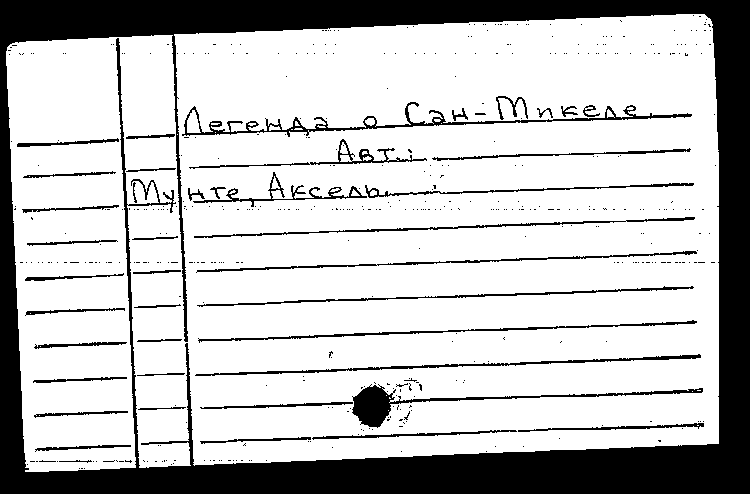 Легенда о Сан-Микеле.
Авт.:
Мунте, Аксель.